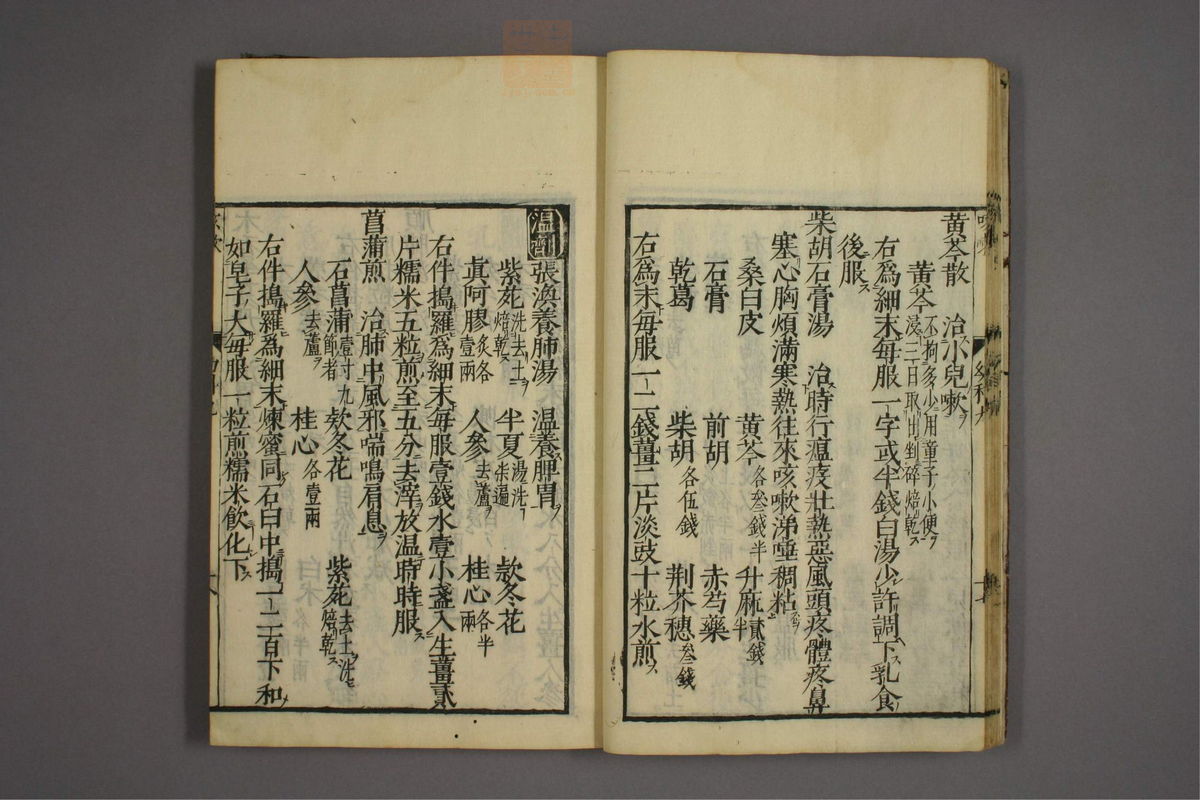 黄芩散　治小兒嗽ヲ
黄芩 不拘多少用童子小便ヲ
浸三日取出剉碎焙乾ス
右爲細末每服一字或半錢白湯少許調下乳食
後服ス
柴胡石膏湯　治時行瘟疫壯熱惡風頭疼體疼鼻
塞心胸煩滿寒熱往來咳嗽涕唾稠粘
桑白皮　黄芩 各叁錢半　升麻 貳錢半
石膏　前胡　赤芍藥
乾葛　柴胡 各伍錢　荆芥穗 叁錢
右爲末每服一二錢薑二片淡豉十粒水煎ス
温劑 張渙養肺湯　温養脾胃ヲ
紫菀 洗去土ヲ焙乾ス　半夏 湯洗七遍　欵冬花
眞阿膠 炙各壹兩　人參 去蘆ヲ　桂心 各半兩
右件搗羅爲細末每服壹錢水壹小盞入生薑貳
片糯米五粒煎至五分去滓放温時時服ス
菖蒲煎　治肺中風邪喘鳴肩息ヲ
石菖蒲 壹寸九節者　欵冬花　紫菀 去土ヲ洗焙乾ス
人參 去蘆ヲ　桂心 各壹兩
右件搗羅爲細末煉蜜同石臼中搗一二百下和
如皂子大每服一粒煎糯米飲化下ス